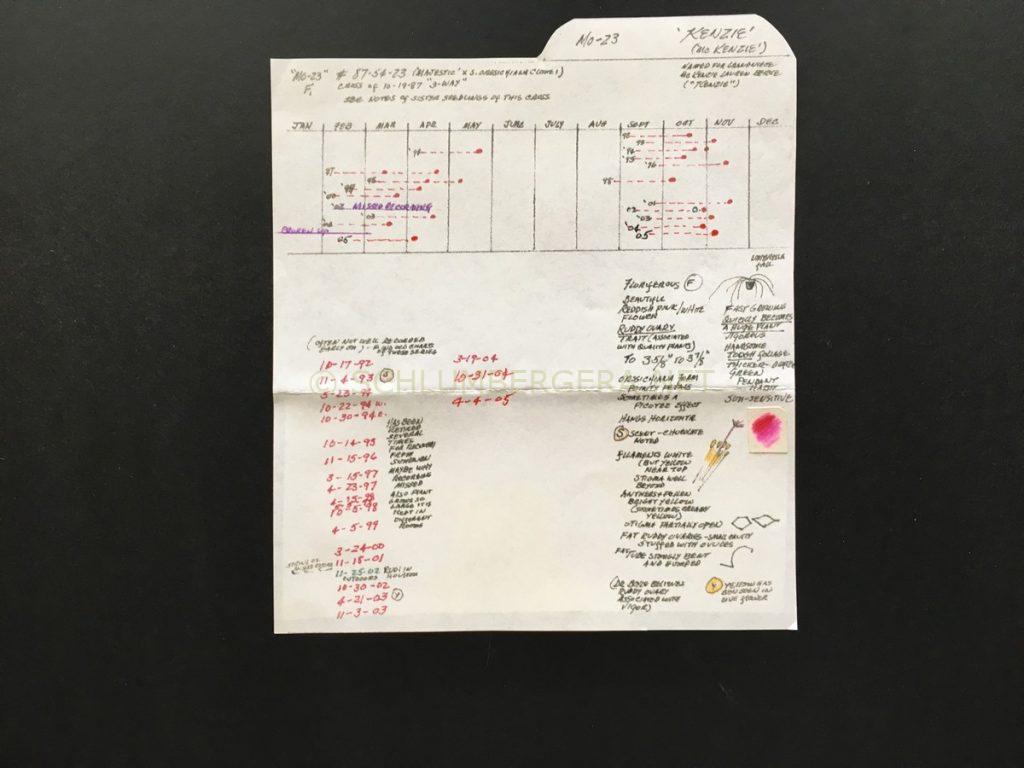 MO-23
'KENZIE'
(MC KENZIE)
"MO-23" # 87-54-23 (MAJESTIC X S. ORSSICHIANA CLONE 1)
F1
CROSS OF 10-19-87 "3-WAY"
SEE NOTES OF SISTER SEEDLINGS OF THIS CROSS
NAMED FOR GRANDNIECE
MCKENZIE LAUREN
("KENZIE")
JAN FEB MAR APR MAY JUNE JULY AUG SEPT OCT NOV DEC
'02 MISSED RECORDING
'03
05
98
'01
02
'03
'04
05
BROKEN UP
UMBRELLA
FLORIFEROUS F
BEAUTIFUL
REDDISH PINK/WHITE
FLOWER
RUDDY OVARY
TRAIT (ASSOCIATED
WITH QUALITY PLANTS)
TO 3 5/8" TO 3 7/8"
ORSSICHIANA FORM
POINTY PETALS
SOMETIMES A
PICOTEE EFFECT
HANGS HORIZONTAL
S SCENT - CHOCOLATE
NOTED
FILAMENTS WHITE
(BUT YELLOW
NEAR TOP
STIGMA WELL
BEYOND
ANTHERS & POLLEN
BRIGHT YELLOW
(SOMETIMES GREADY
YELLOW)
STIGMA PARTIALLY OPEN
FAT RUDDY OVARIES - SMALL CAVITY
STUFFED WITH OVULES
FAT
TUBE STRONGLY BENT
AND HUMPED
RUDDY OVARY
ASSOCIATED WITH
VIGOR)
Y YELLOW HAS
BEEN SEEN IN
ONE FLOWER
FAST GROWING
QUICKLY BECOMES
A HUGE PLANT
VIGOROUS
HANDSOME
TOUGH FOLIAGE
THICKER - DARK
GREEN
PENDANT
HABIT
SUN-SENSITIVE
(OFTEN NOT WELL RECORDED
EARLY ON) - FIND OLD CHARTS
OF THESE SERIES
10-17-92
4-93 S
5-23-94
10-22-94 W.
10-30-94 E.
10-14-95
11-15-96
3-15-97
4-23-97
10-5-98
4-5-99
3-24-00
11-18-01
11-25-02 RUDI IN
OUTDOORS HOUSTON
10-30-02
4-21-03 Y
11-3-03
3-19-04
10-31-04
4-4-05
HAS BEEN
RETIRED
SEVERAL
TIMES
FOR RECOVERY
FROM
SUNBURN
MAYBE WHY
RECORDING
MISSED
ALSO PLANT
GROWS SO
LARGE IT IS
KEPT IN
DIFFERENT
ROOMS
© SCHLUMBERGERA.NET